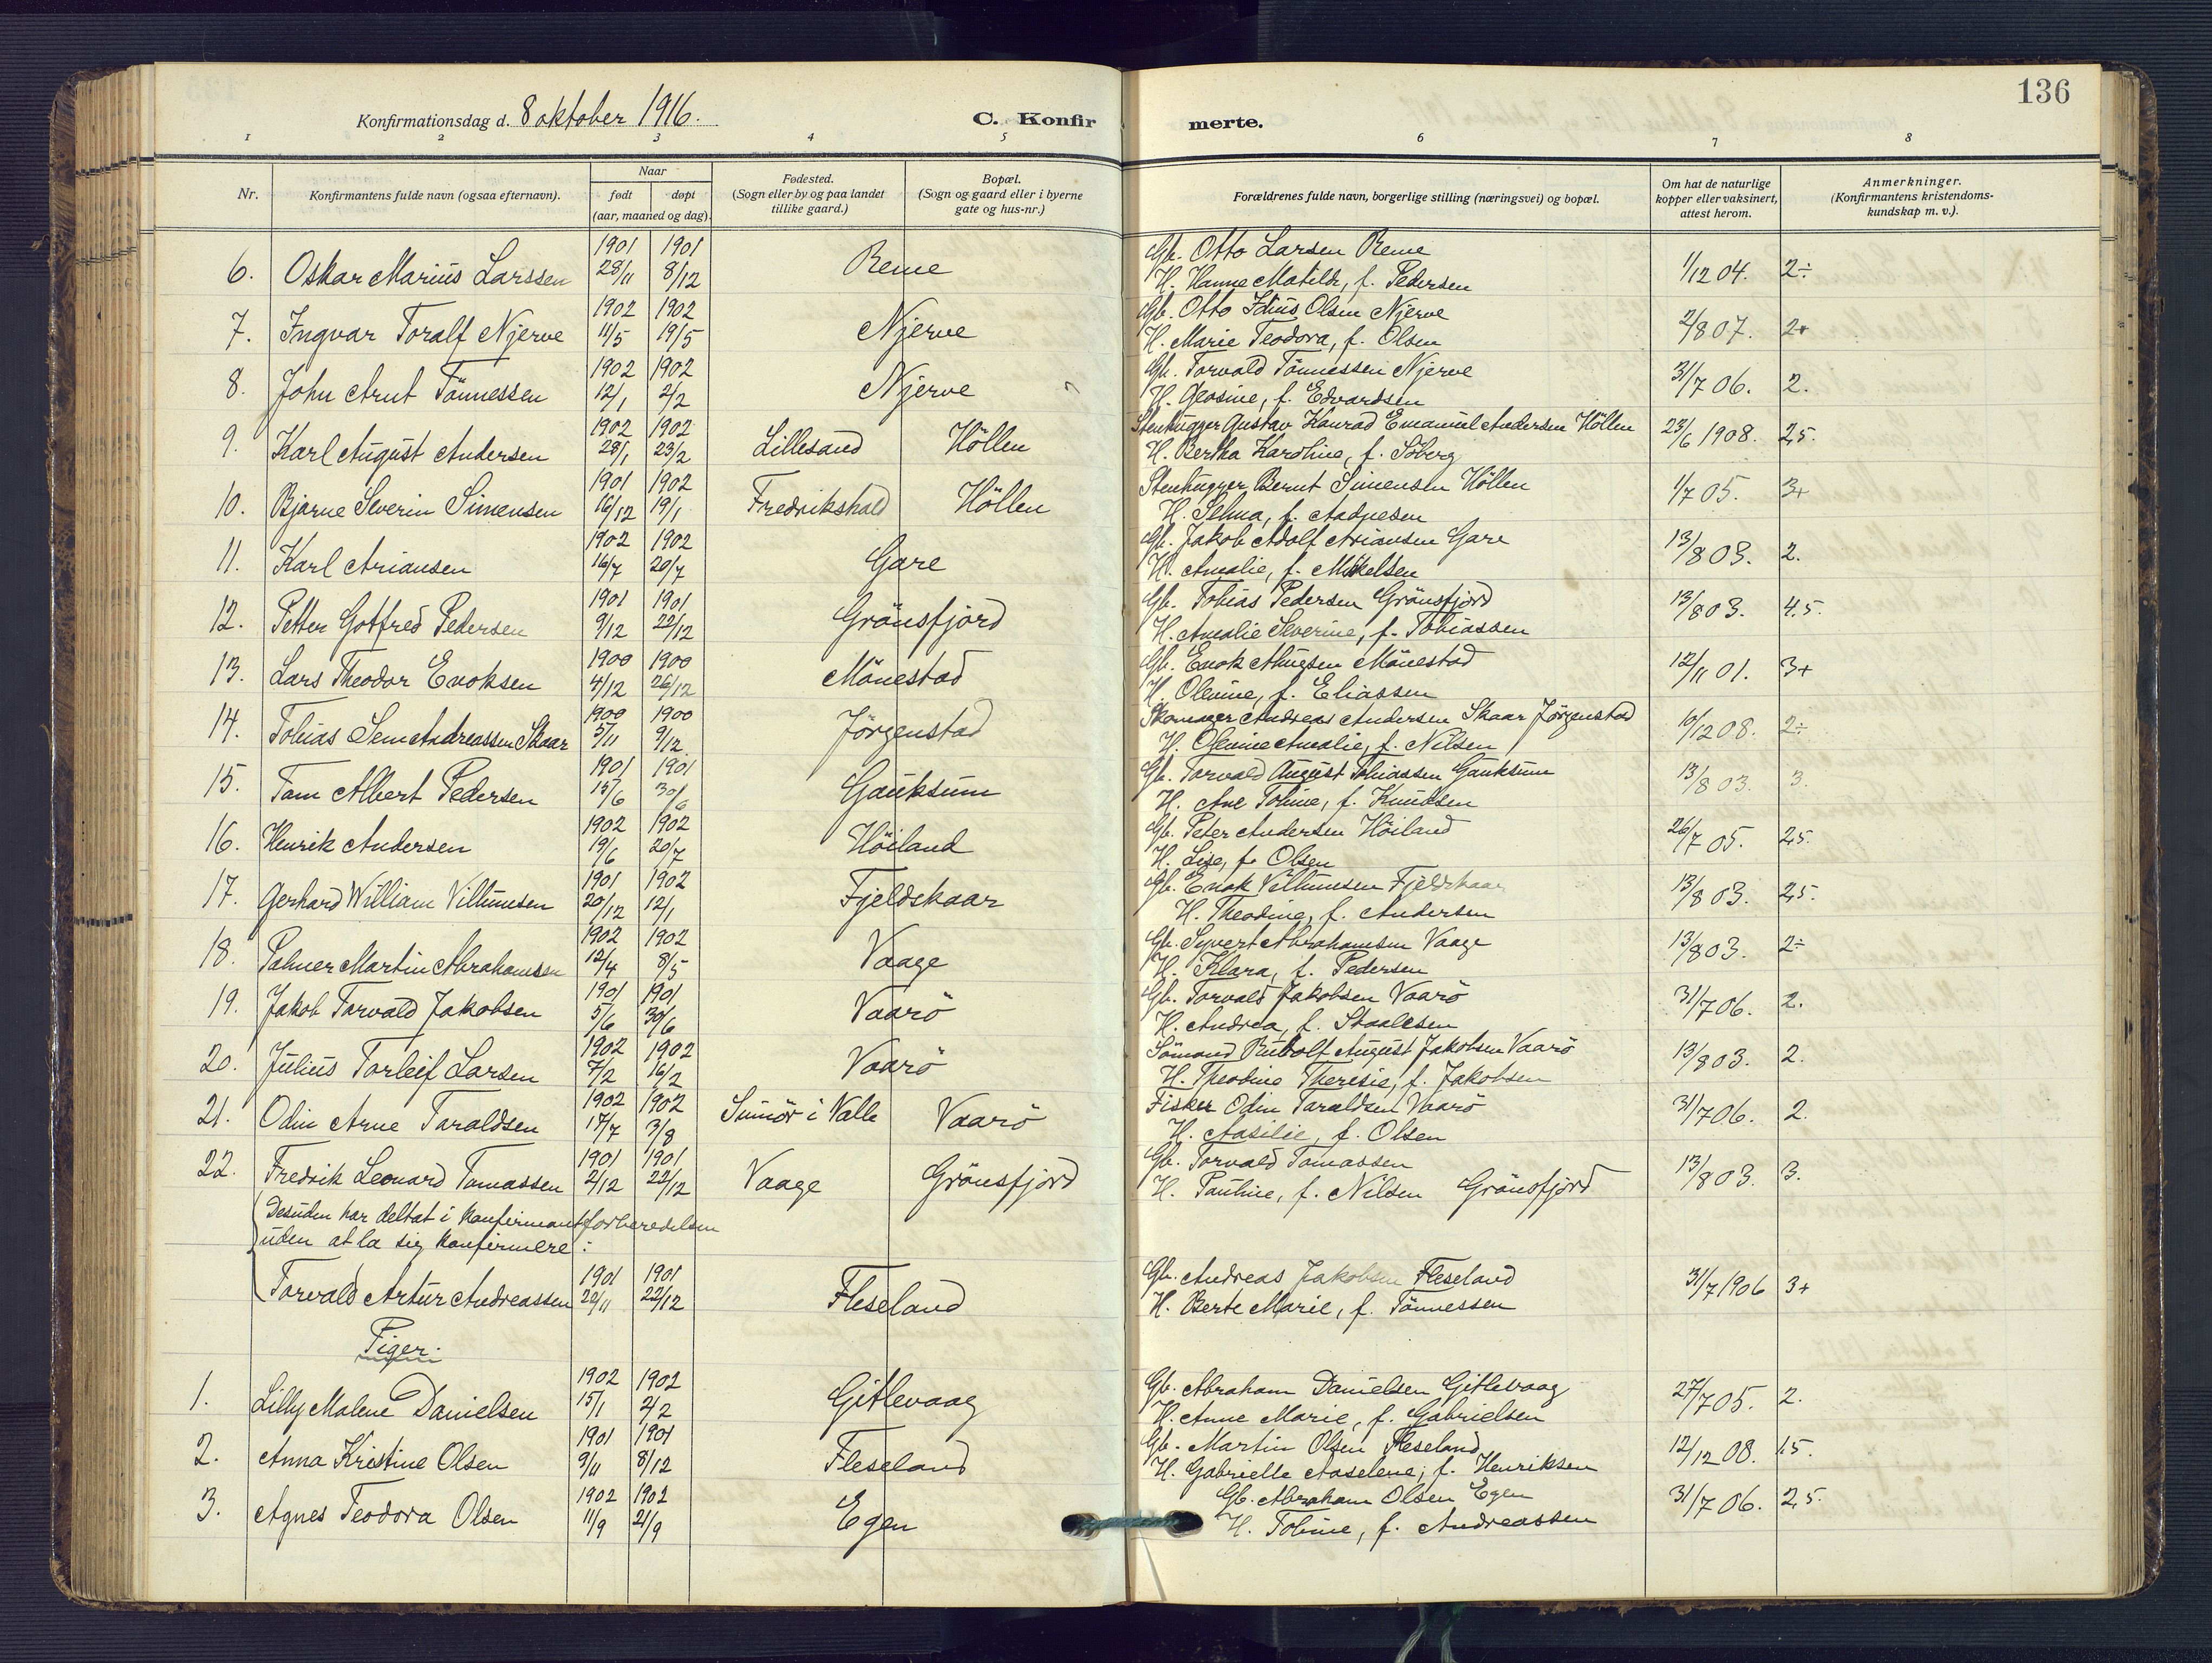 136
Konfirmationsdag d. 8 oktober 1916.
C. Konfir merte.
1 2 3 4 5 6 7 8
Nr.
Konfirmantens fulde navn (ogsaa efternavn).
Naar
født døpt
(aar, maaned og dag).
Fødested.
(Sogn eller by og paa landet
tillike gaard.)
Bopæl.
(Sogn og gaard eller i byerne
gate og hus-nr.)
Forældrenes fulde navn, borgerlige stilling (næringsvei) og bopæl.
Om hat de naturlige
kopper eller vaksinert,
attest herom.
Anmerkninger.
(Konfirmantens kristendoms-
kundskap m. v.).
1901 1901 Gb. Otto Larsen Reme
6. Oskar Marius Larssen 28/11 8/12 Reme H. Hanne Matilde, f. Pedersen 1/12 04. 2÷
1902 1902 Gb. Otto Olsen Njerve
7. Ingvar Toralf Njerve 11/5 19/5 Njerve H. Marie Teodora, f. Olsen 2/8 07. 2+
1902 1902 Gb. Torvald Tönnessen Njerve
8. John Arnt Tönnessen 12/1 2/2 Njerve H. Geosine, f. Edvardsen 31/7 06. 2.
1902 1902 Stenhugger Gustav Konrad Emanuel Andersen Höllen
9. Karl August Andersen 28/1 23/2 Lillesand Höllen H. Bertha Karoline, f. Söberg 23/6 1908. 2,5.
1901 1902 Stenhugger Bernt Simensen Höllen
10. Bjarne Severin Simensen 16/12 19/1 Fredrikshald Höllen H. Selma, f. Aadnesen 1/7 05. 3+
1902 1902 Gb. Jakob Adolf Ariansen Gare
11. Karl Ariansen 16/7 20/7 Gare H. Amalie, f. Mikkelsen 13/8 03. 2.
1901 1901 Gb. Tobias Pedersen Grönsfjord
12. Petter Gotfred Pedersen 9/12 22/12 Grönsfjord H. Amalie Severine, f. Tobiassen 13/8 03. 4.5.
1900 1900 Gb. Enok Mönestad
13. Lars Theodor Enoksen 4/12 26/12 Mönestad H. Olenine, f. Eliassen 12/11 01. 3+
1900 1900 Skomager Andreas Andersen Skaar Jörgenstad
14. Tobias Sem Andreassen Skaar 5/11 9/12 Jörgenstad H. Olenine Amalie, f. Nilsen 10/12 08. 2÷
1901 1901 Gb. Torvald August Tobiassen Gauksum
15. Tom Albert Pedersen 15/6 30/6 Gauksum H. Ane Tobine, f. Knudsen 13/8 03. 3.
1902 1902 Gb. Peter Andersen Höiland
16. Henrik Andersen 19/6 20/7 Höiland H. Lise, f. Olsen 26/7 05. 2,5.
1901 1902 Gb. Enok Villumsen Fjeldskaar
17. Gerhard William Villumsen 20/12 12/1 Fjeldskaar H. Theodine, f. Andersen 13/8 03. 2,5.
1902 1902 Gb. Syvert Abrahamsen Vaage
18. Palmer Martin Abrahamsen 12/4 8/5 Vaage H. Klara, f. Pedersen 13/8 03. 2÷
1901 1901 Gb. Torvald Jakobsen Vaarö
19. Jakob Torvald Jakobsen 5/6 30/6 Vaarö H. Andrea, f. Staalesen 31/7 06. 2.
1902 1902 Sömand Rudolf August Jakobsen Vaarö
20. Julius Torleif Larsen 7/2 16/2 Vaarö H. Theodine Theresie, f. Jakobsen 13/8 03. 2.
1902 1902 Fisker Odin Taraldsen Vaarö
21. Odin Arne Taraldsen 17/7 3/8 i Valle Vaarö H. Aasilie, f. Olsen 31/7 06. 2.
1901 1901 Gb. Torvald Tomassen
22. Fredrik Leonard Tomassen 2/12 22/12 Vaage Grönsfjord H. Pauline, f. Nilsen Grönsfjord 13/8 03. 3.
Desuden har deltat i konfirmantforberedelsen
uden at la sig konfirmere:
1901 1901 Gb. Andreas Jakobsen Fleseland
Torvald Artur Andreassen 20/11 22/12 Fleseland H. Berte Marie, f. Tönnessen 31/7 1906 3+
Piger.
1902 1902 Gb. Abraham Danielsen Gitlevaag
1. Lilly Malene Danielsen 15/1 2/2 Gitlevaag H. Anne Marie, f. Gabrielsen 27/7 05. 2.
1901 1901 Gb. Martin Olsen Fleseland
2. Anna Kristine Olsen 9/11 8/12 Fleseland H. Gabrielle Aaselene, f. Henriksen 12/12 08. 1.5.
1902 1902 Gb. Abraham Olsen Egen
3. Agnes Teodora Olsen 11/9 21/9 Egen H. Tobine, f. Andreassen 31/7 06. 2,5.